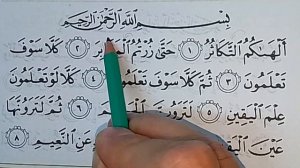 بِسْمِ اللَّهِ الرَّحْمَٰنِ الرَّحِيمِ
أَلْهَىٰكُمُ التَّكَاثُرُ ١ حَتَّىٰ زُرْتُمُ ٢ كَلَّا سَوْفَ
تَعْلَمُونَ ٣ ثُمَّ كَلَّا سَوْفَ تَعْلَمُونَ ٤ كَلَّا لَوْ تَعْلَمُونَ
عِلْمَ الْيَقِينِ ٥ لَتَرَوُنَّ ٦ ثُمَّ لَتَرَوُنَّهَا
عَيْنَ الْيَقِينِ عَنِ النَّعِيمِ ٨